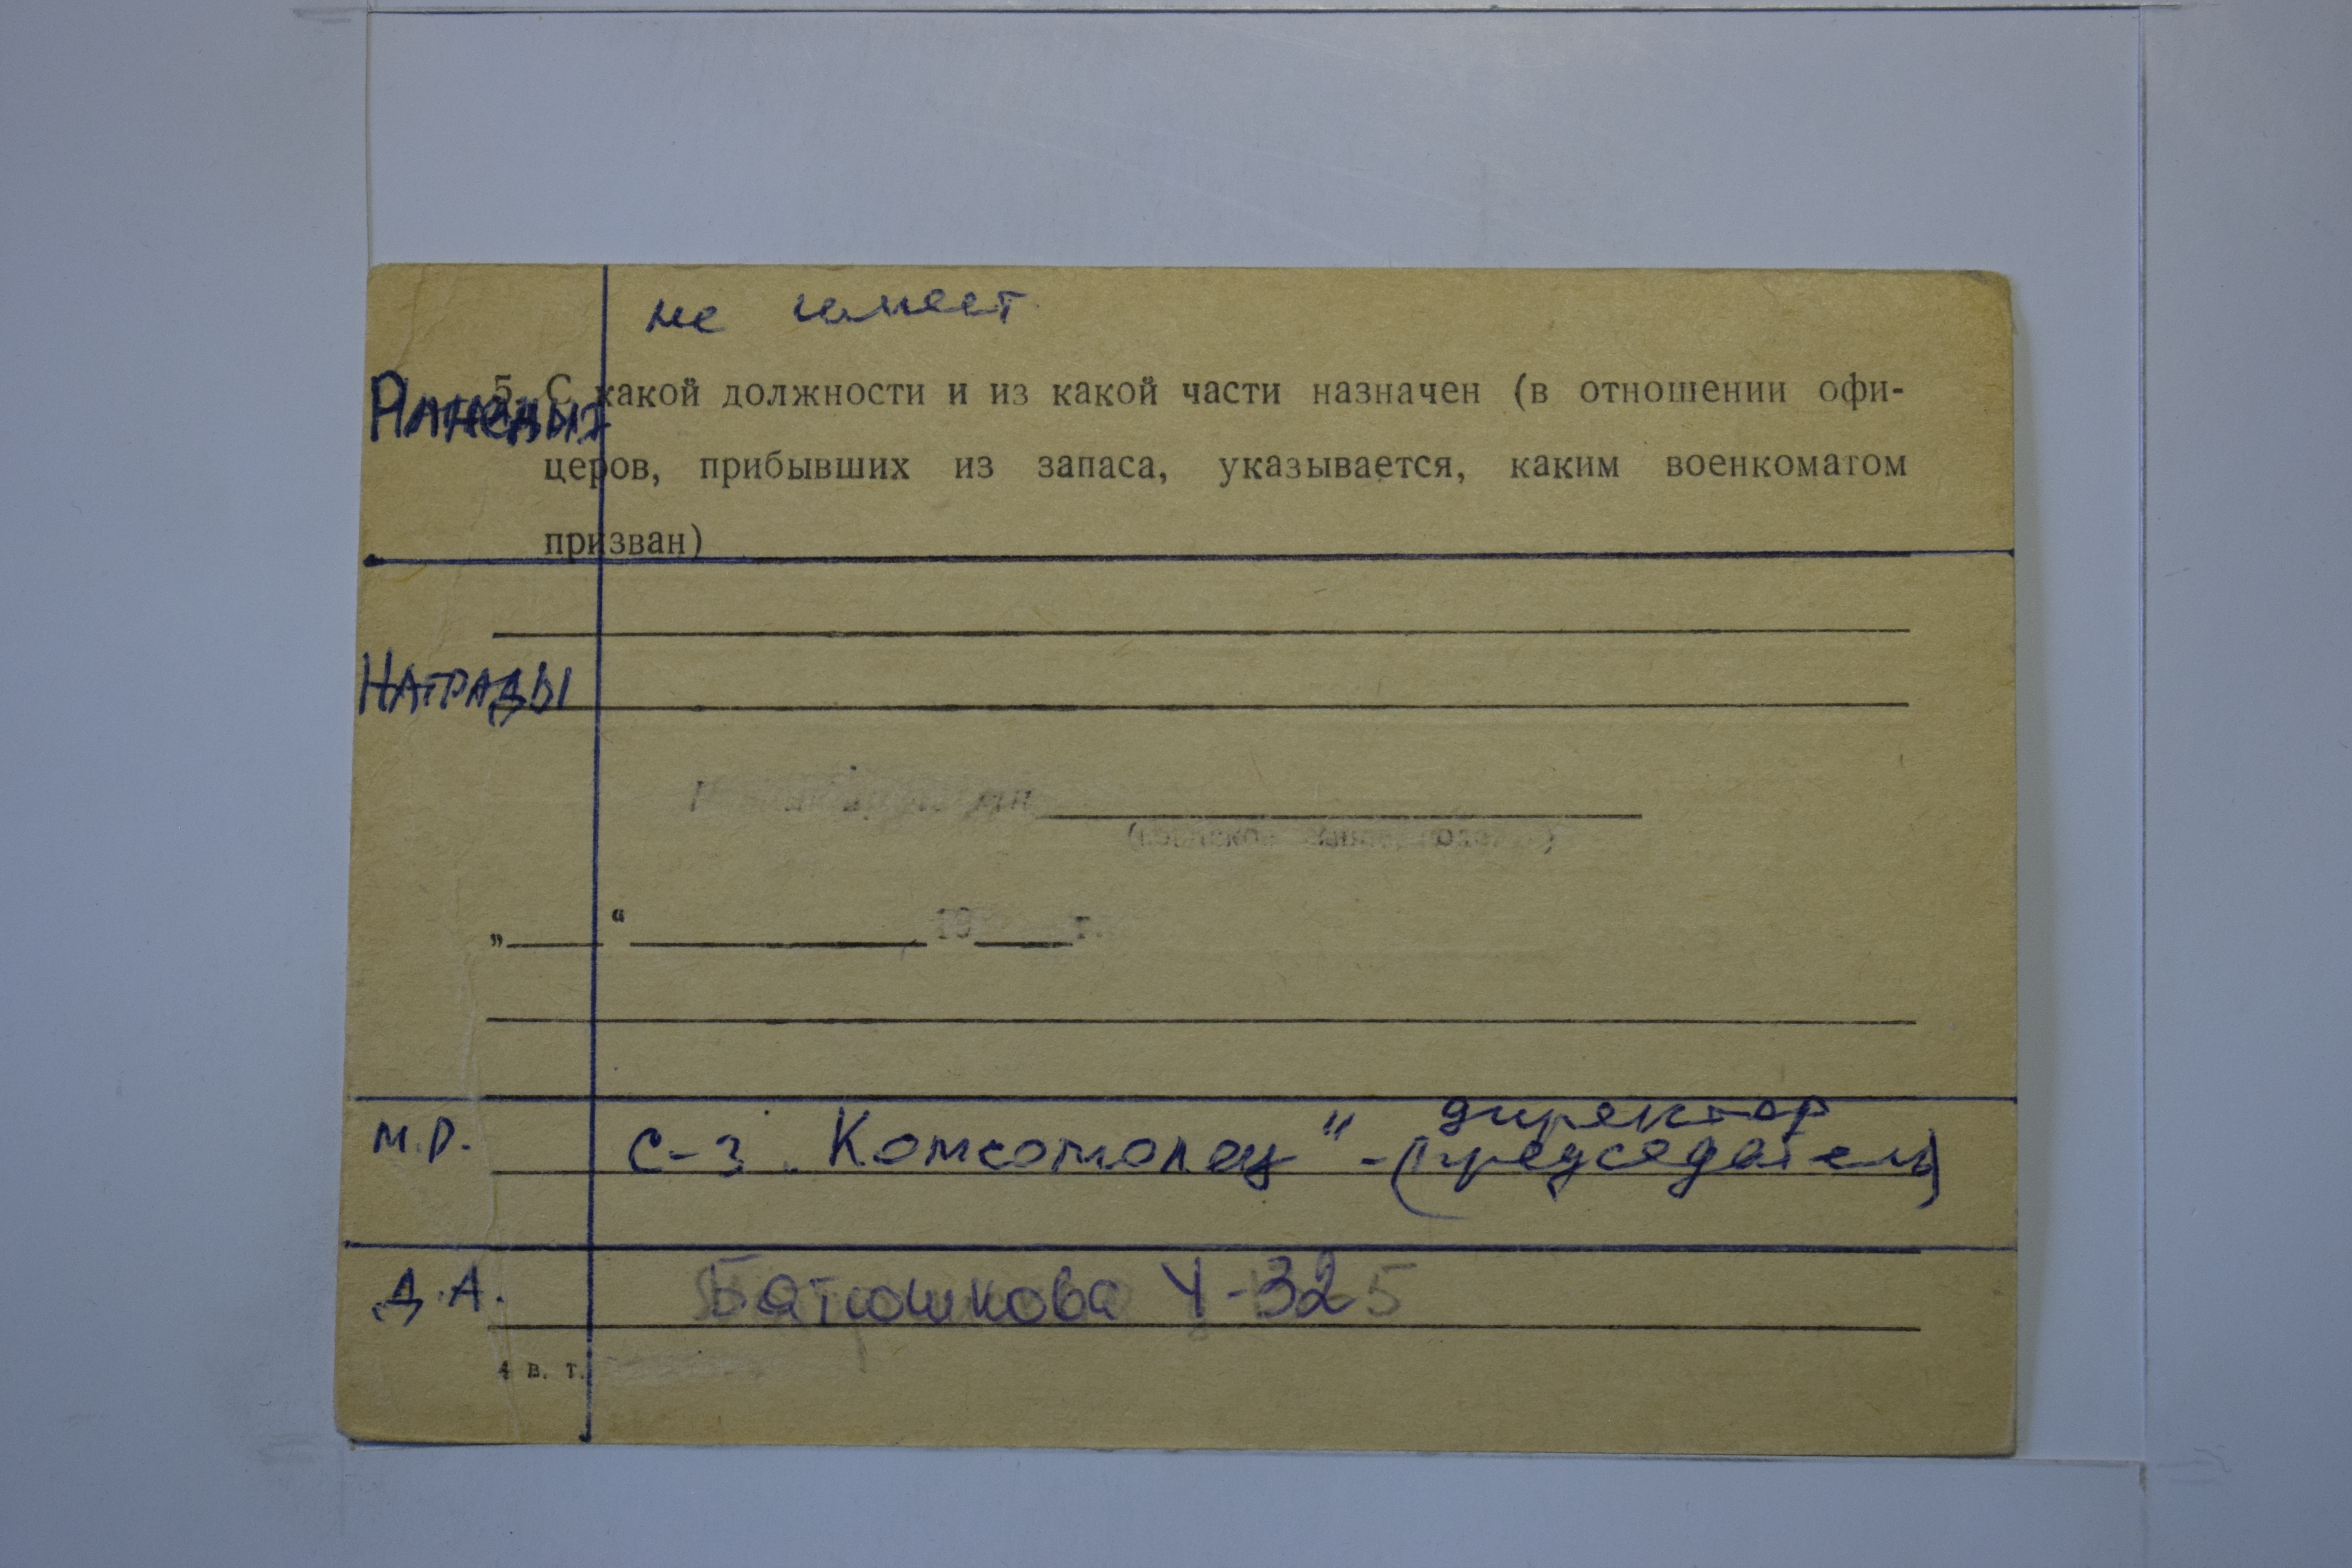 не имеет
5. С какой должности и из какой части назначен (в отношении офи-
церов, прибывших из запаса, указывается, каким военкоматом
призван)
НАГРАДЫ
„ “ 19 г.
М.Р. с-з „Комсомолец" - директор
(председатель)
Д.А. Батюшкова 4-32 5
4 В. Т.